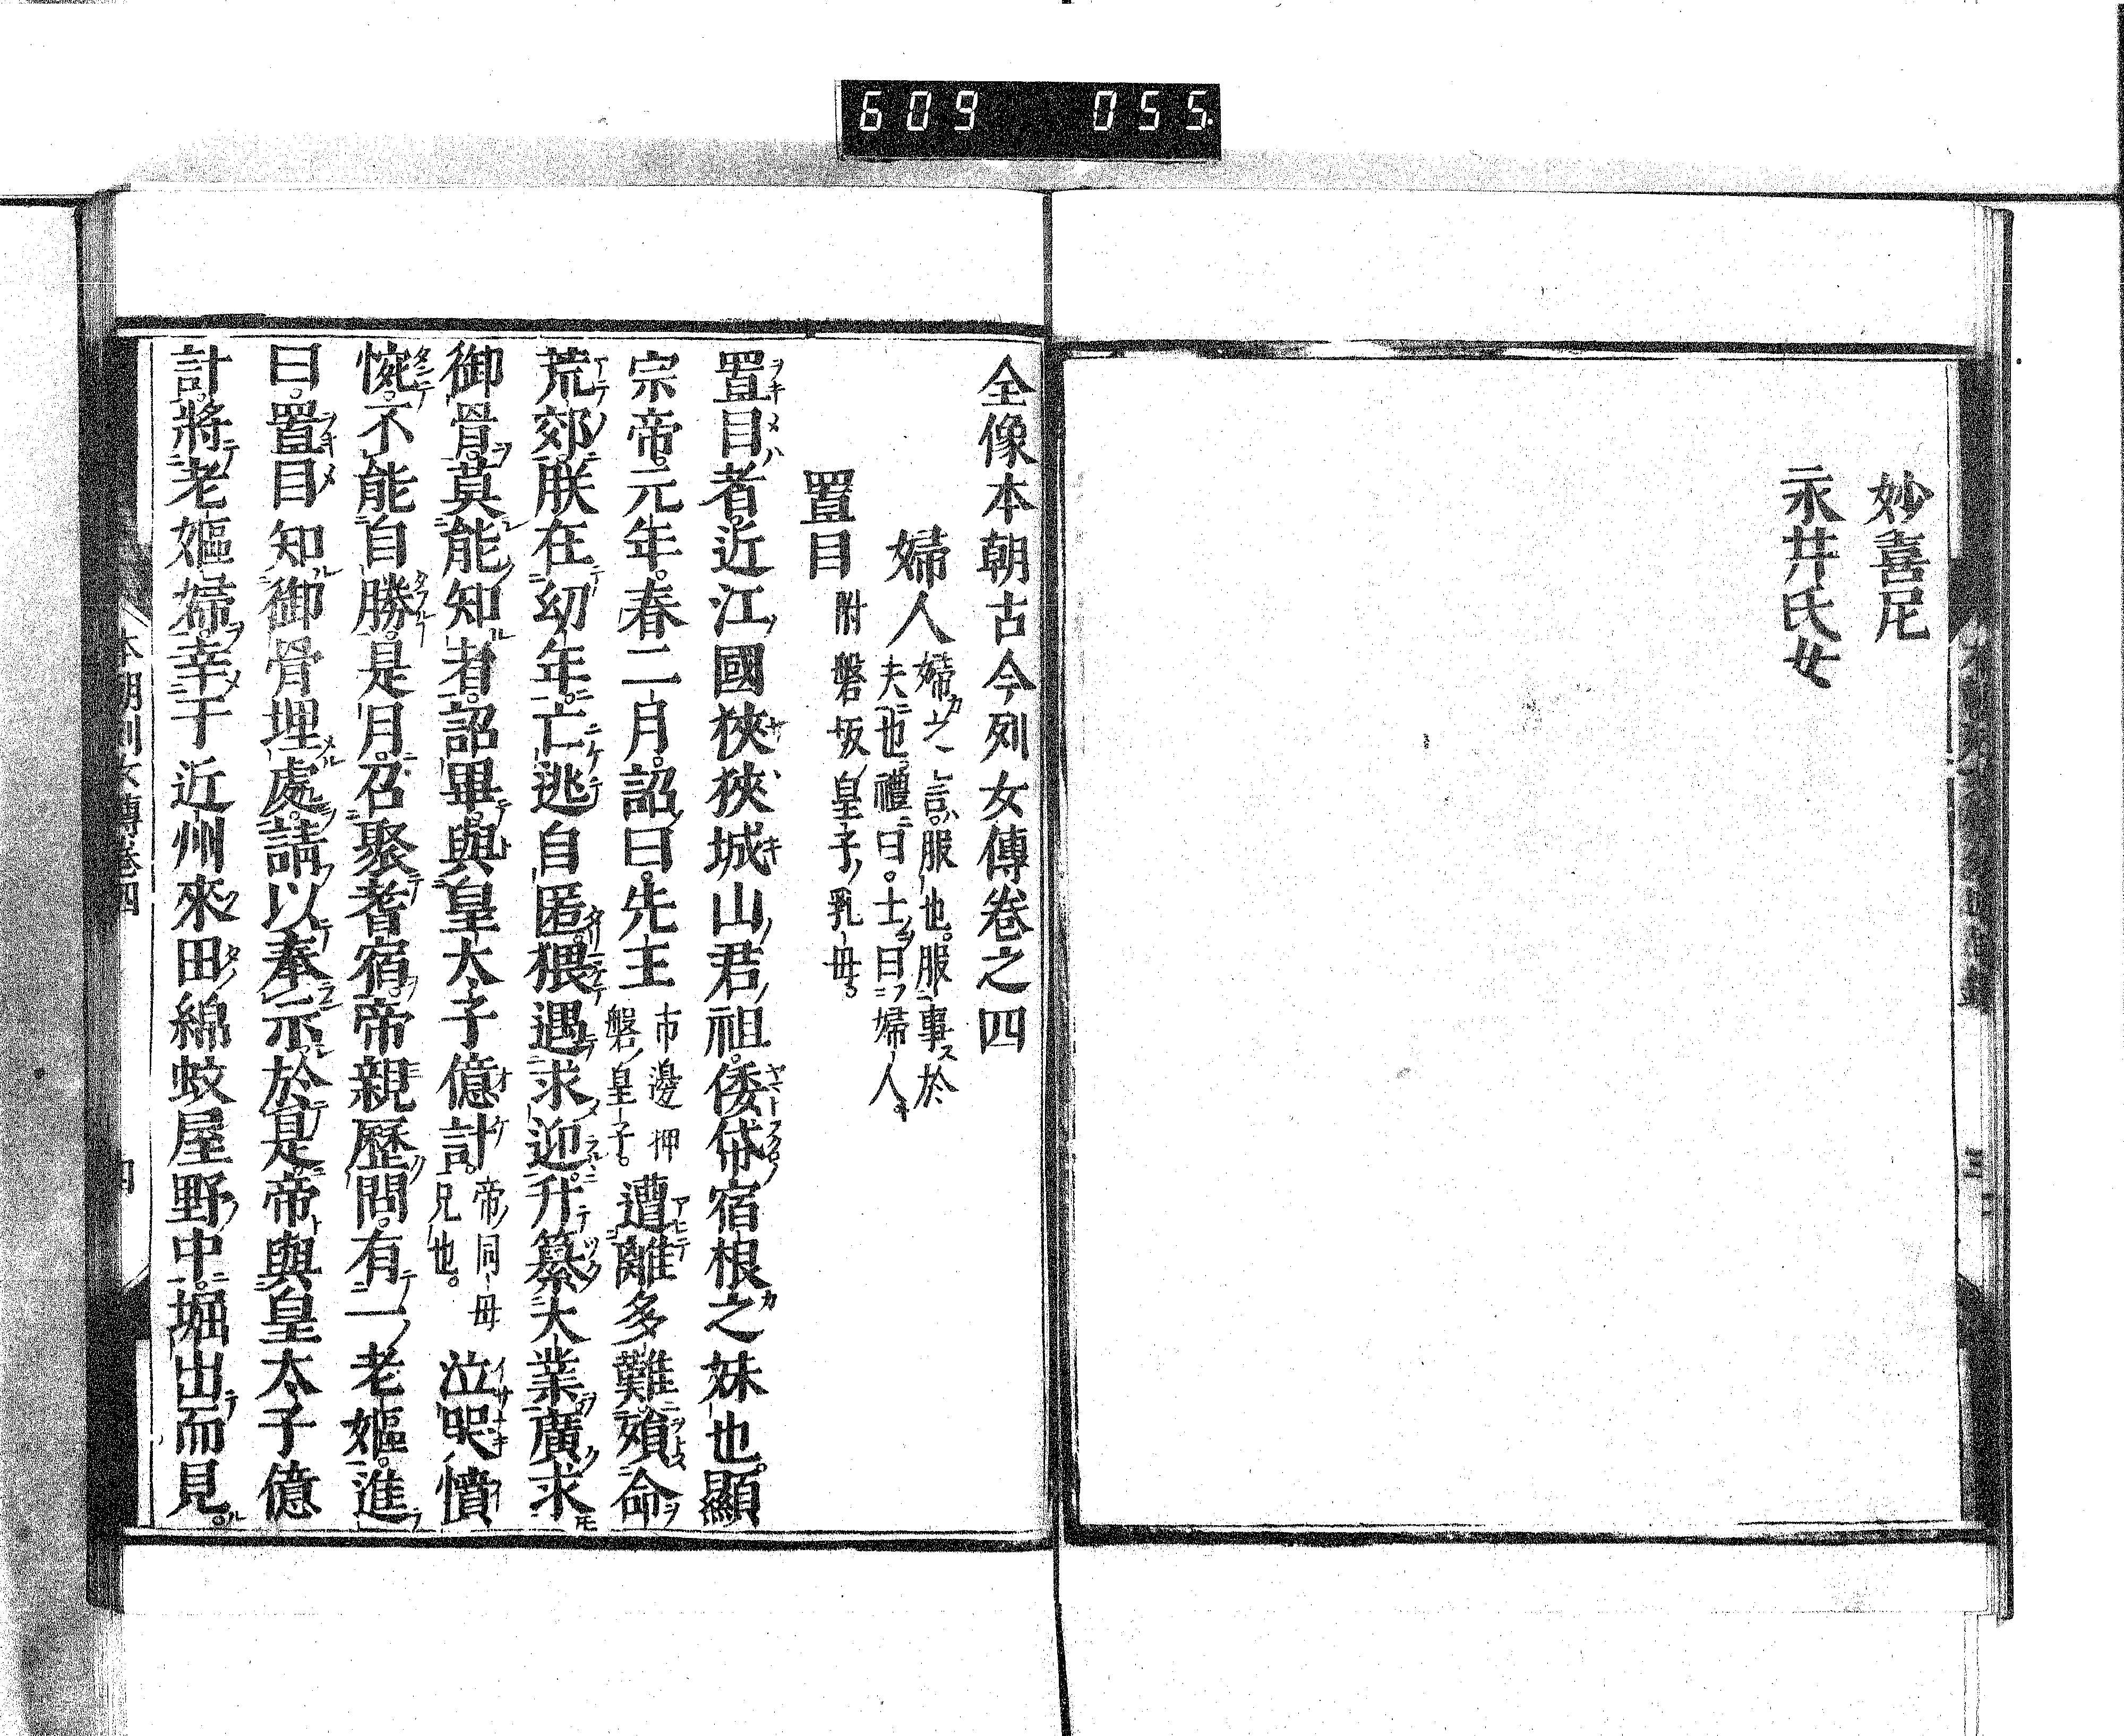 609 055
妙喜尼
永井氏女
全像本朝古今列女傳卷之四
婦人 婦之言服也。服事於
夫也。禮曰。士曰婦人
置目 附磐坂皇子乳母。
置目者。近江國狹狹城山君祖。倭帒宿根之妹也。顯
宗帝。元年。春二月。詔曰。先王 市邊押磐皇子。 遭離多難。殞命
荒郊。朕在幼年。亡逃自匿。猥遇求迎。升纂大業。廣求
御骨。莫能知者。詔畢。與皇太子億計。 帝同母兄也。 泣哭憤
惋。不能自勝。是月。召聚耆宿。帝親歷問。有一老嫗。進
曰。置目知御骨埋處。請以奉示。於是。帝與皇太子億
計。將老嫗婦。幸于近州來田綿蚊屋野中。堀出而見。
本朝列女傳卷四
四